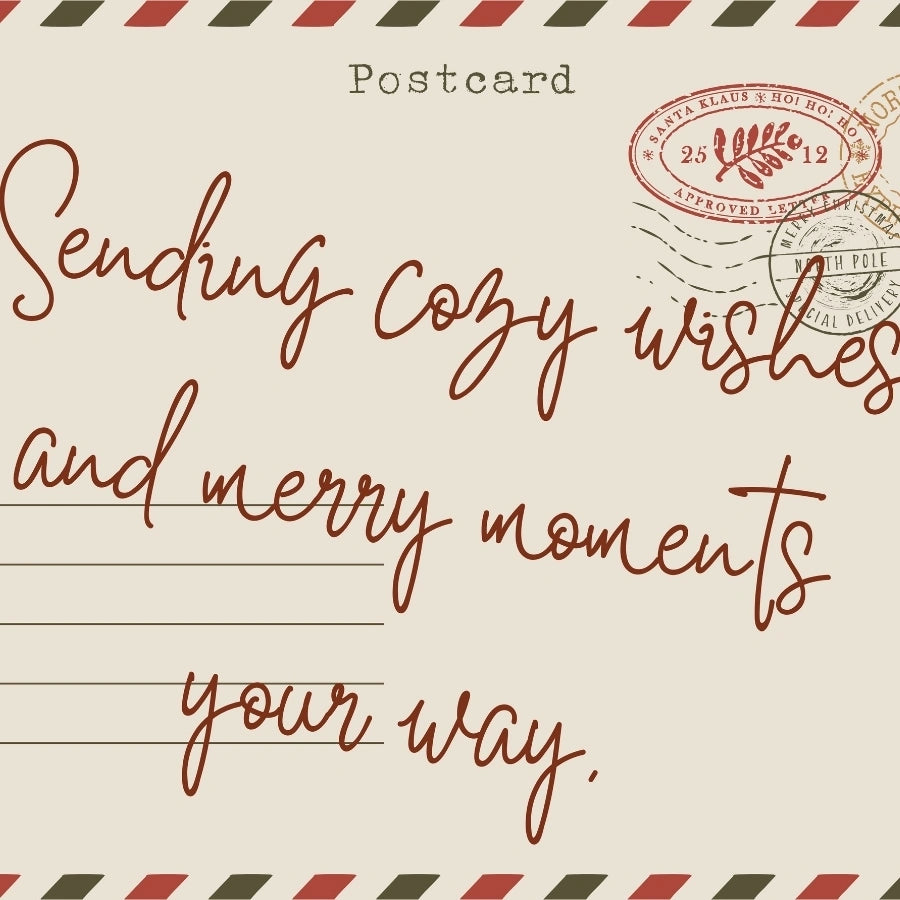 Postcard
SANTA KLAUS HO! HO! HO
25 12
APPROVED LETTER
MERRY CHRISTMAS
NORTH POLE
Sending cozy wishes
and merry moments
your way.